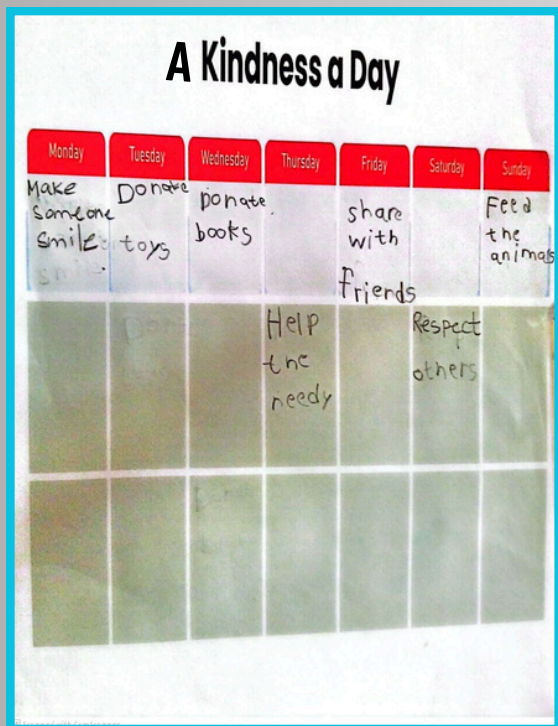 A Kindness a Day
Monday Tuesday Wednesday Thursday Friday Saturday Sunday
Make
someone
smile
smile.
Donate
toys
Donate
books
share
with
friends
Feed
the
animals
Help
the
needy
Respect
others